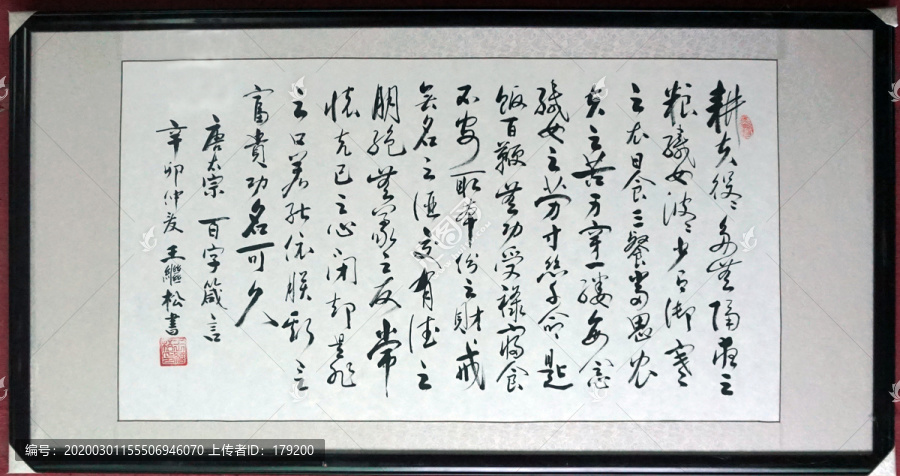 耕夫役役多無隔宿之
粮織女波波少有御寒
之衣日食三餐當思农
夫之苦身穿一縷每念
織女之劳寸絲千命匙
飯百鞭無功受祿寢食
不安取本份之財戒
無名之酒交有德之
朋絕無義之友常
懷克己之心閉却是非
之口若能依朕斯言
富貴功名可久
唐太宗百字箴言
辛卯仲夏王繼松書
编号：20200301155506946070 上传者ID：179200